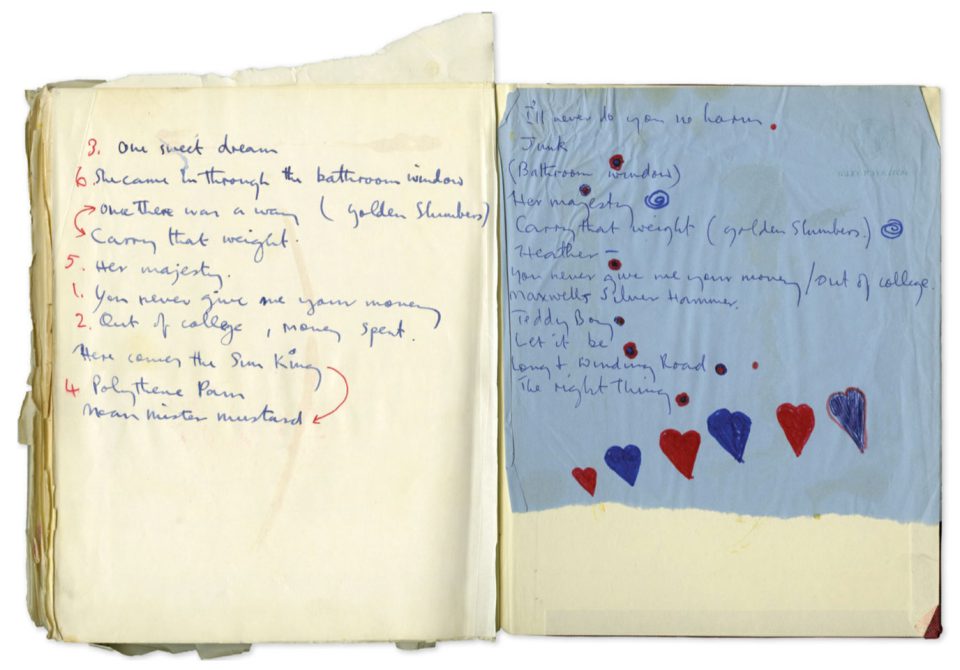 3. One sweet dream
6. She came in through the bathroom window
Once there was a way (golden Slumbers)
Carry that weight.
5. Her majesty.
1. You never give me your money
2. Out of college, money spent.
Here comes the Sun King
4 Polythene Pam
Mean mister mustard
I'll never do you no harm.
Junk
(Bathroom window)
Her majesty
Carry that weight (golden Slumbers.)
Heather –
You never give me your money / out of college.
Maxwells Silver Hammer.
Teddy Boy
Let it be
Long + winding Road
The right Thing